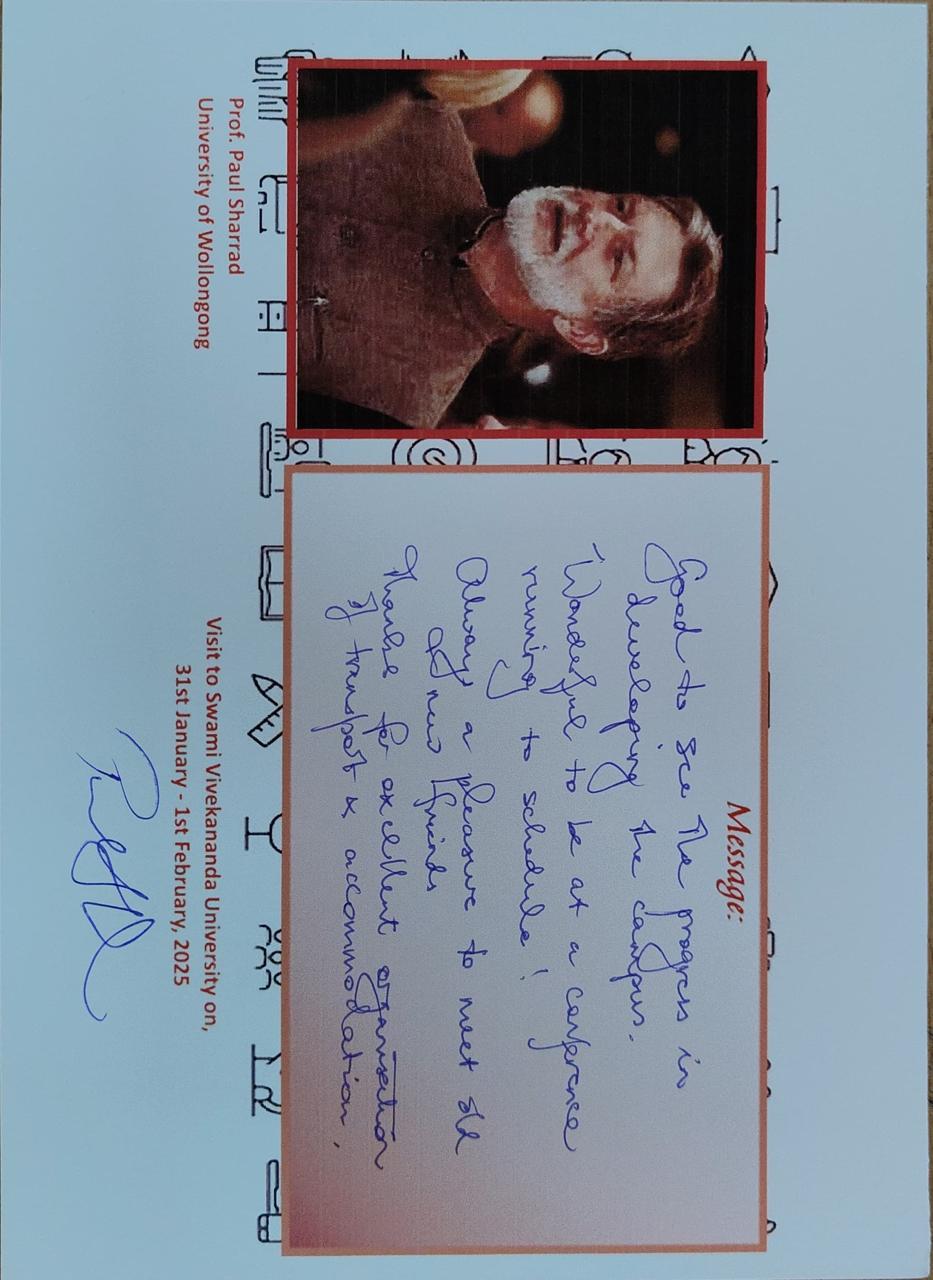 Message:
Good to see the progress in
developing the campus.
Wonderful to be at a conference
running to schedule!
Always a pleasure to meet old
& new friends
Thanks for excellent organisation
of transport & accommodation.
Prof. Paul Sharrad
University of Wollongong
Visit to Swami Vivekananda University on,
31st January - 1st February, 2025